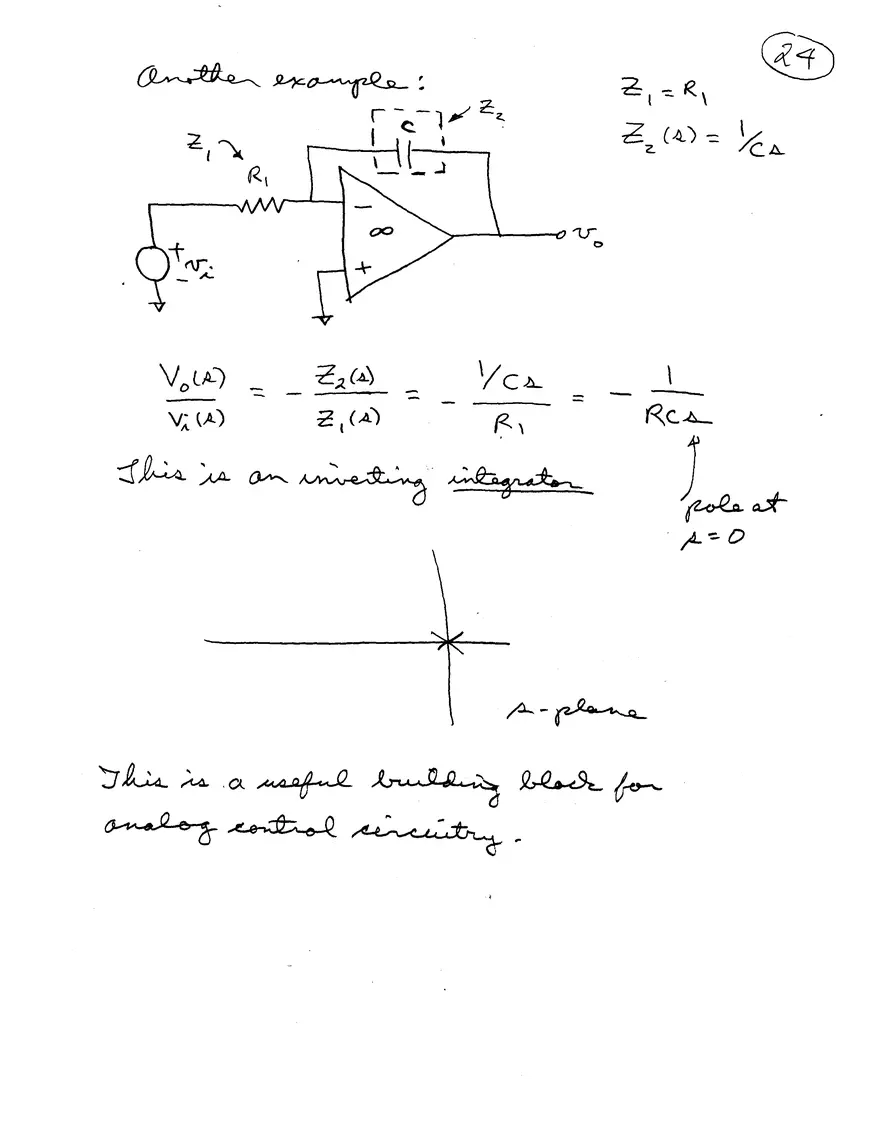 24
Another example:
Z₁ = R₁
Z₂(s) = 1/Cs
Z₂
C
Z₁
R₁
−
∞
+
v₀
+
vᵢ
−
V₀(s)/Vᵢ(s) = − Z₂(s)/Z₁(s) = − (1/Cs)/R₁ = − 1/RCs
This is an inverting integrator
pole at
s = 0
s-plane
This is a useful building block for
analog control circuitry.